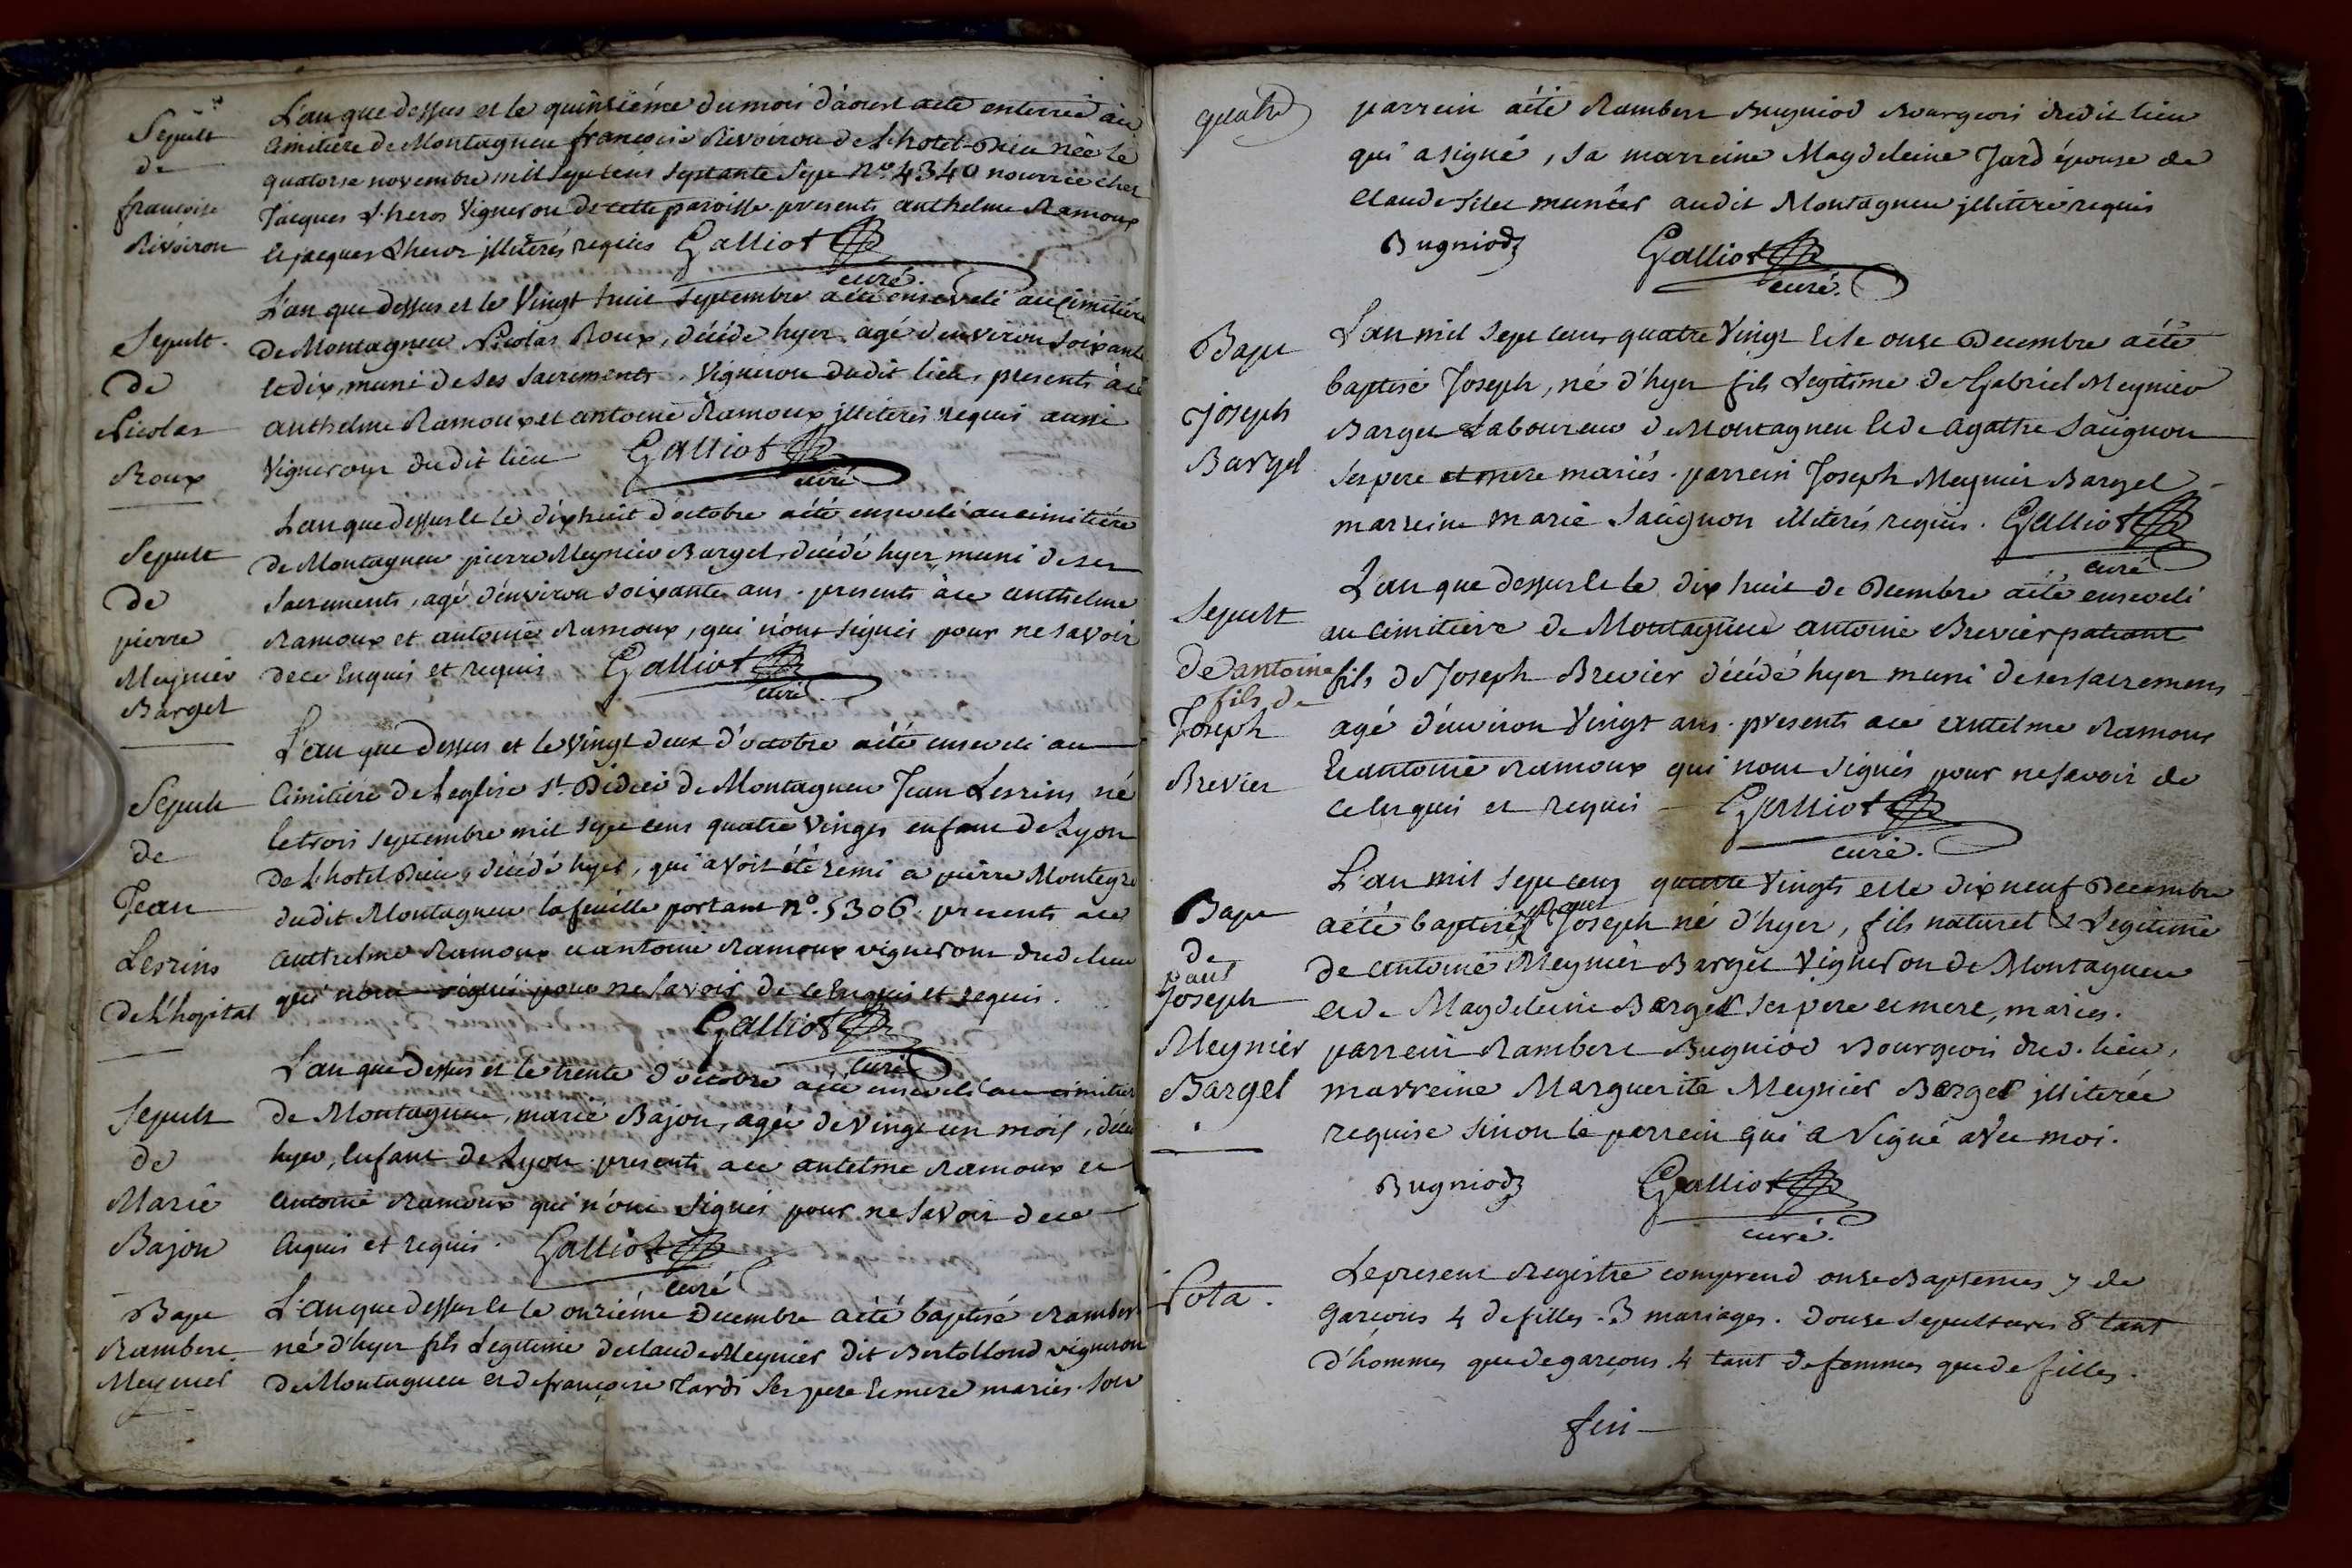 Sepult
de
francoise
Rivoiron
L'an que dessus et le quinsiéme du mois d'aoust a eté enterreé au
Cimitiere de Montagneu françoise Rivoiron de L'hotel-Dieu née le
quatorse novembre mil sept cens septante sept N.º 4340 nourrie chez
Jacques L'heros Vigneron de cette paroisse presents anthelme Ramoux
et jacques Lheros jlliterés requis Galliot
curé.
Sepult.
de
Nicolas
Roux
L'an que dessus et le Vingt huit Septembre a eté enseveli au Cimitiére
de Montagneu Nicolas Roux, décédé hyer agé d'environ soixante
et dix, muni de ses sacrements, Vigneron dudit lieu, presents à ce
anthelme Ramoux et antoine Ramoux jlliterés requis aussi
Vignerons dudit lieu Galliot
curé
Sepult
de
pierre
Meynier
Bargel
L'an que dessus et le dixhuit d'octobre a été enseveli au cimitiére
de Montagneu pierre Meynier Bargel, décédé hyer, muni de ses
sacrements, agé d'environ soixante ans. presents à ce anthelme
Ramoux et antoine Ramoux, qui n'ont signés pour ne savoir
de ce Enquis et requis Galliot
curé
Sepult
de
Jean
Lesrins
de L'hopital
L'an que dessus et le vingt deux d'octobre a été enseveli au
Cimitiére de L'eglise St. Didier de Montagneu Jean Lesrins né
le trois septembre mil sept cens quatre vingts enfant de Lyon
de L'hotel Dieu, décédé hyer, qui avoit été remi a pierre Montegre
dudit Montagneu la feuille portant nº. 5306. presents a ce
anthelme Ramoux et antoine Ramoux vignerons dud. lieu
qui n'ont signés pour ne savoir de ce Enquis et requis.
Galliot
curé
Sepult
de
Marie
Bajon
L'an que dessus et le trente d'octobre a été enseveli au cimitier
de Montagneu, marie Bajon, agée de vingt un mois, décéd
hyer, Enfant de Lyon. presents a ce antelme Ramoux et
antoine Ramoux qui n'ont signés pour ne savoir de ce
Enquis et requis. Galliot
curé
Bapt
Rambert
Meynier
L'an que dessus et le onziéme Decembre a été baptisé Rambert
né d'hyer fils Legitime de claude Meynier dit Bertollond vigneron
de Montagneu et de françoise Jards ses pere et mere mariés. son
quatre
parrein a été Rambert Bugniod Bourgeois dudit lieu
qui a signé, sa marreine Magdeleine Jard épouse de
Claude audit Montagneu jlliteré requis
Bugniod Galliot
curé.
Bapt
Joseph
Bargel
L'an mil sept cens quatre Vingt et le onse Decembre a été
baptisé Joseph, né d'hyer fils Legitime de Gabriel Meynier
Bargel Laboureur de Montagneu et de agathe Saugnon
ses pere et mere mariés. parrein Joseph Meynier Bargel
marreine marie Saugnon illiterés requis. Galliot
curé
Sepult
de antoine
fils de
Joseph
Brevier
L'an que dessus et le dix huit de Decembre a été enseveli
au cimitiere de Montagneu antoine Brevier
fils de Joseph Brevier décédé hyer muni de ses sacremens
agé d'environ Vingt ans. presents a ce antelme Ramoux
Et antoine Ramoux qui n'ont signés pour ne savoir de
ce Enquis et requis Galliot
curé.
Bapt
de
paul
Joseph
Meynier
Bargel
L'an mil sept cens quatre vingts et le dix neuf Decembre
a été baptisé paul Joseph né d'hyer, fils naturel & Legitime
de antoine Meynier Bargel Vigneron de Montagneu
et de Magdeleine Bargel ses pere et mere, mariés.
parrein Rambert Bugniod Bourgeois dud. lieu,
marreine Marguerite Meynier Bargel jlliterée
requise sinon le parrein qui a signé avec moi.
Bugniod Galliot
curé.
Nota.
Le present Registre comprend onse Baptemes 7 de
garçons 4 de filles. 3 mariages. douse sepultures 8 tant
d'hommes que de garçons. 4 tant de femmes que de filles.
fin